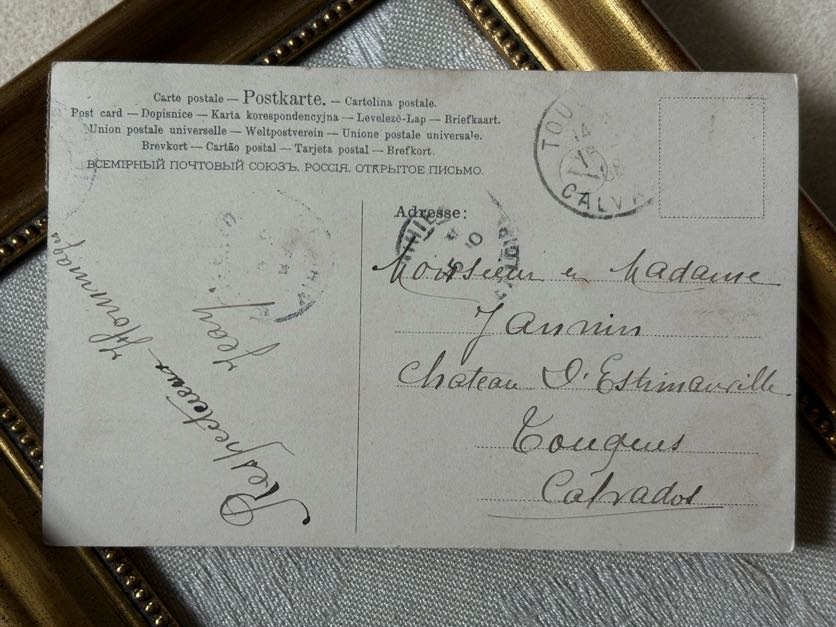 Carte postale — Postkarte. — Cartolina postale.
Post card — Dopisnice — Karta korespondencyjna — Levelező-Lap — Briefkaart.
Union postale universelle — Weltpostverein — Unione postale universale.
Brevkort — Cartão postal — Tarjeta postal — Brefkort.
ВСЕМІРНЫЙ ПОЧТОВЫЙ СОЮЗЪ. РОССІЯ. ОТКРЫТОЕ ПИСЬМО.
TOU
14
CALV
Adresse:
Monsieur et Madame
Jannin
Chateau D'Estimauville
Touques
Calvados
Respectueux Hommages
Jean